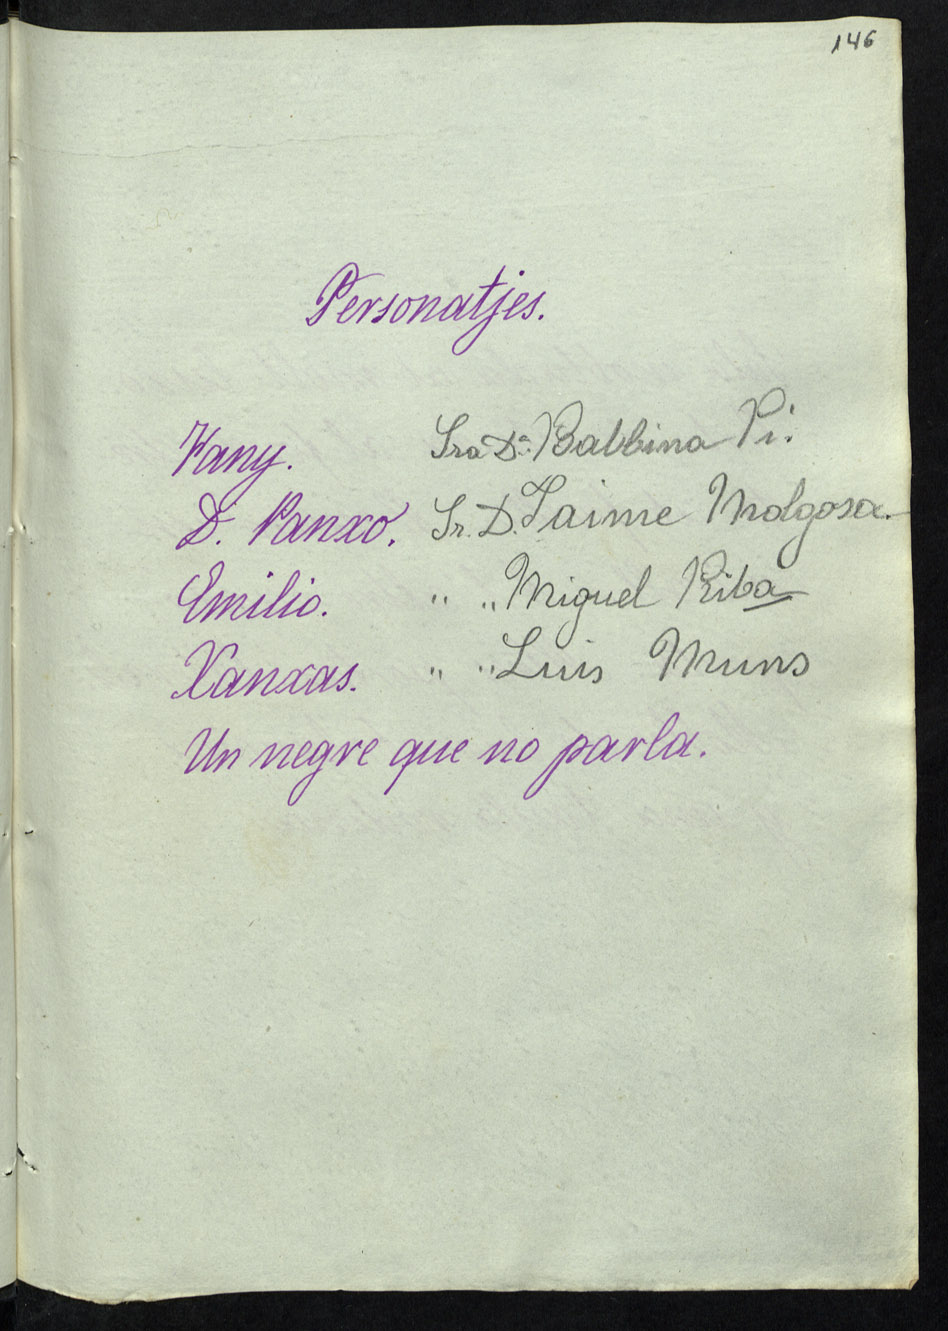 146
Personatjes.
Fany. Sra Dª. Balbina Pi.
D. Panxo. Sr. D. Jaime Molgosa.
Emilio. " " Miguel Riba
Xanxas. " " Luis Muns
Un negre que no parla.